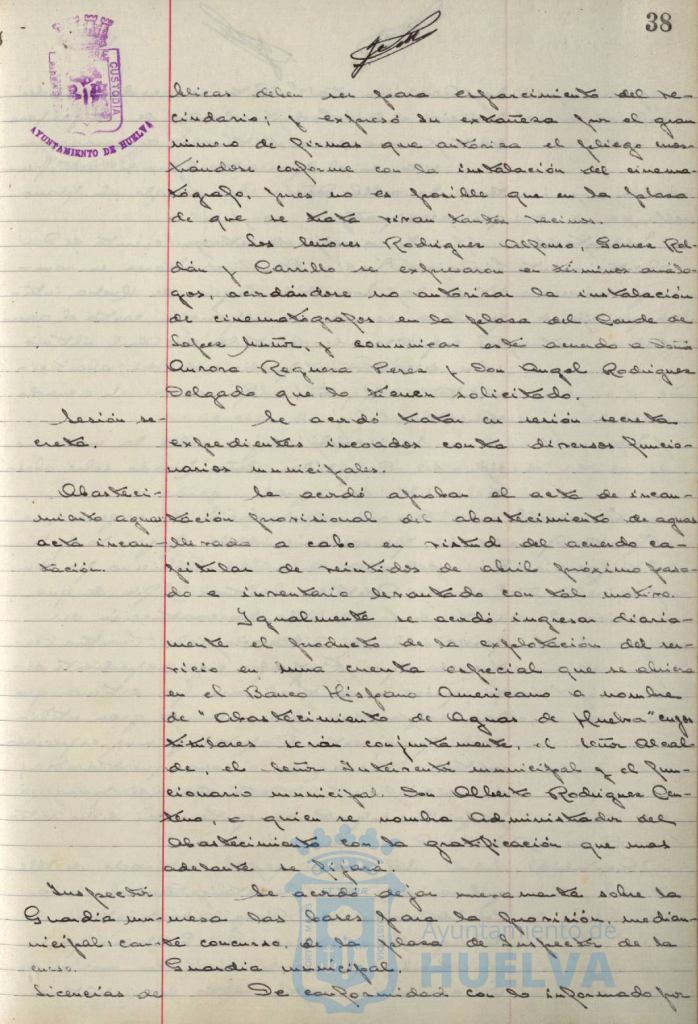 38
CUSTODIA
AYUNTAMIENTO DE HUELVA
blicas deben ser para esparcimiento del ve-
cindario; y expresó su extrañeza por el gran
número de firmas que autoriza el pliego mos-
trándose conforme con la instalación del cinema-
tógrafo, pues no es posible que en la plaza
de que se trata vivan tantos vecinos.
Los Señores Rodriguez Alfonso, Gomez Rol-
dán y Carrillo se expresaron en términos análo-
gos, acordándose no autorizar la instalación
de cinematógrafos en la plaza del Conde de
Lopez Muñoz, y comunicar este acuerdo a Doña
Aurora Reguera Perez y Don Angel Rodriguez
Delgado que lo tienen solicitado.
Sesión se-
creta.
Se acordó tratar en sesión secreta
expedientes incoados contra diversos funcio-
narios municipales.
Abasteci-
miento aguas
acta incau-
tación.
Se acordó aprobar el acta de incau-
tación provisional del abastecimiento de aguas
llevada a cabo en virtud del acuerdo ca-
pitular de veintidos de abril próximo pasa-
do e inventario levantado con tal motivo.
Igualmente se acordó ingresar diaria-
mente el producto de la explotación del ser-
vicio en una cuenta especial que se abriera
en el Banco Hispano Americano a nombre
de "Abastecimiento de Aguas de Huelva" cuyos
titulares serán conjuntamente, el Señor Alcal-
de, el Señor Interventor municipal y el fun-
cionario municipal Don Alberto Rodriguez Cen-
teno, a quien se nombra Administrador del
Abastecimiento con la gratificación que mas
adelante se fijará.
Inspector
Guardia mu-
nicipal: con-
curso.
Se acordó dejar nuevamente sobre la
mesa las bases para la provisión, median-
te concurso, de la plaza de Inspector de la
Guardia municipal.
Licencias de
De conformidad con lo informado por
Ayuntamiento de
HUELVA